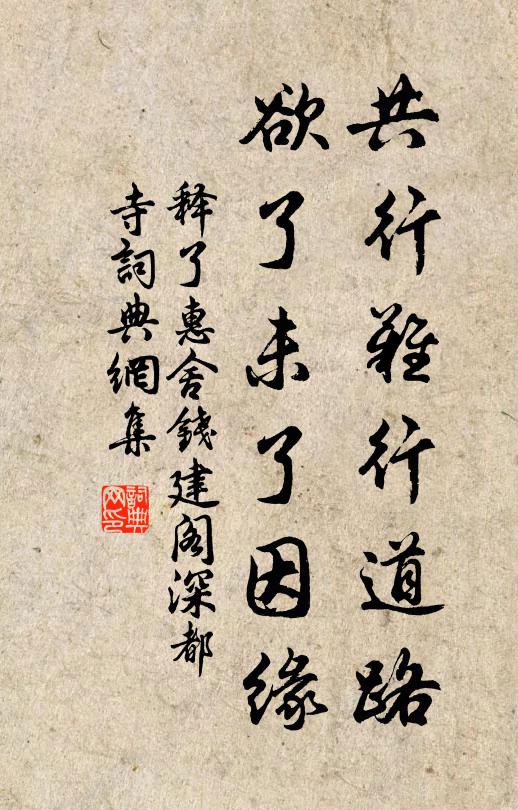 共行難行道路
欲了未了因緣
释了惠舍錢建阁深都
寺詞典網集
詞典网印